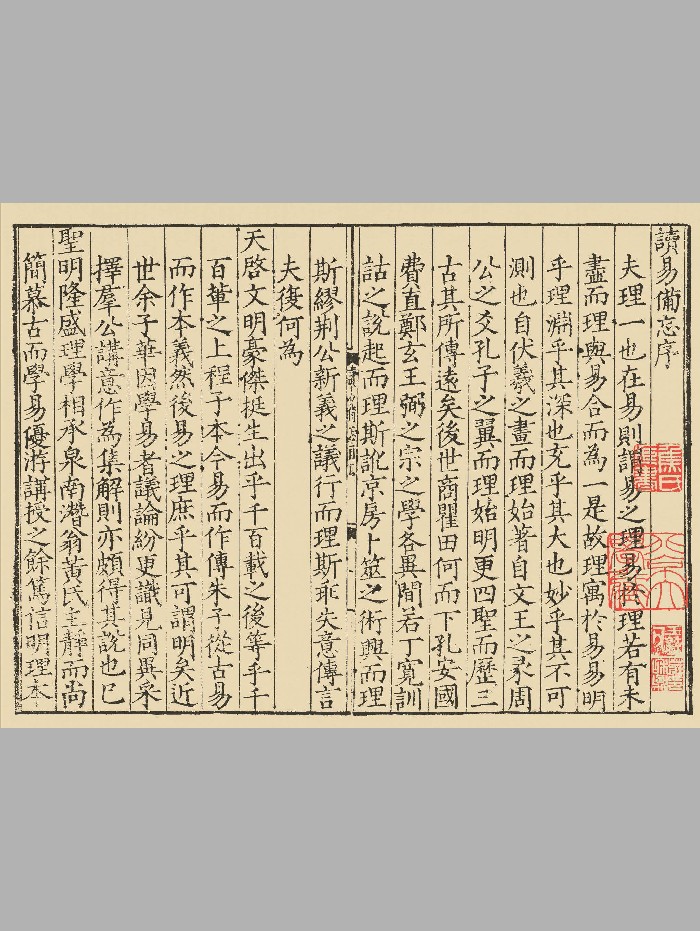 讀易備忘序
夫理一也在易則謂易之理易於理若有未
盡而理與易合而為一是故理寓於易易明
乎理淵乎其深也充乎其大也妙乎其不可
測也自伏羲之畫而理始著自文王之彖周
公之爻孔子之翼而理始明更四聖而歷三
古其所傳遠矣後世商瞿田何而下孔安國
費直鄭玄王弼之宗之學各異間若丁寬訓
詁之說起而理斯訛京房卜筮之術興而理
斯繆荆公新義之議行而理斯乖失意傳言
夫復何為
天啓文明豪傑挺生出乎千百載之後等乎千
百軰之上程子本今易而作傳朱子從古易
而作本義然後易之理庶乎其可謂明矣近
世余子華因學易者議論紛更識見同異采
擇羣公講意作為集解則亦頗得其說也已
聖明隆盛理學相承泉南潛翁黃氏主靜而尚
簡慕古而學易優游講授之餘篤信明理本